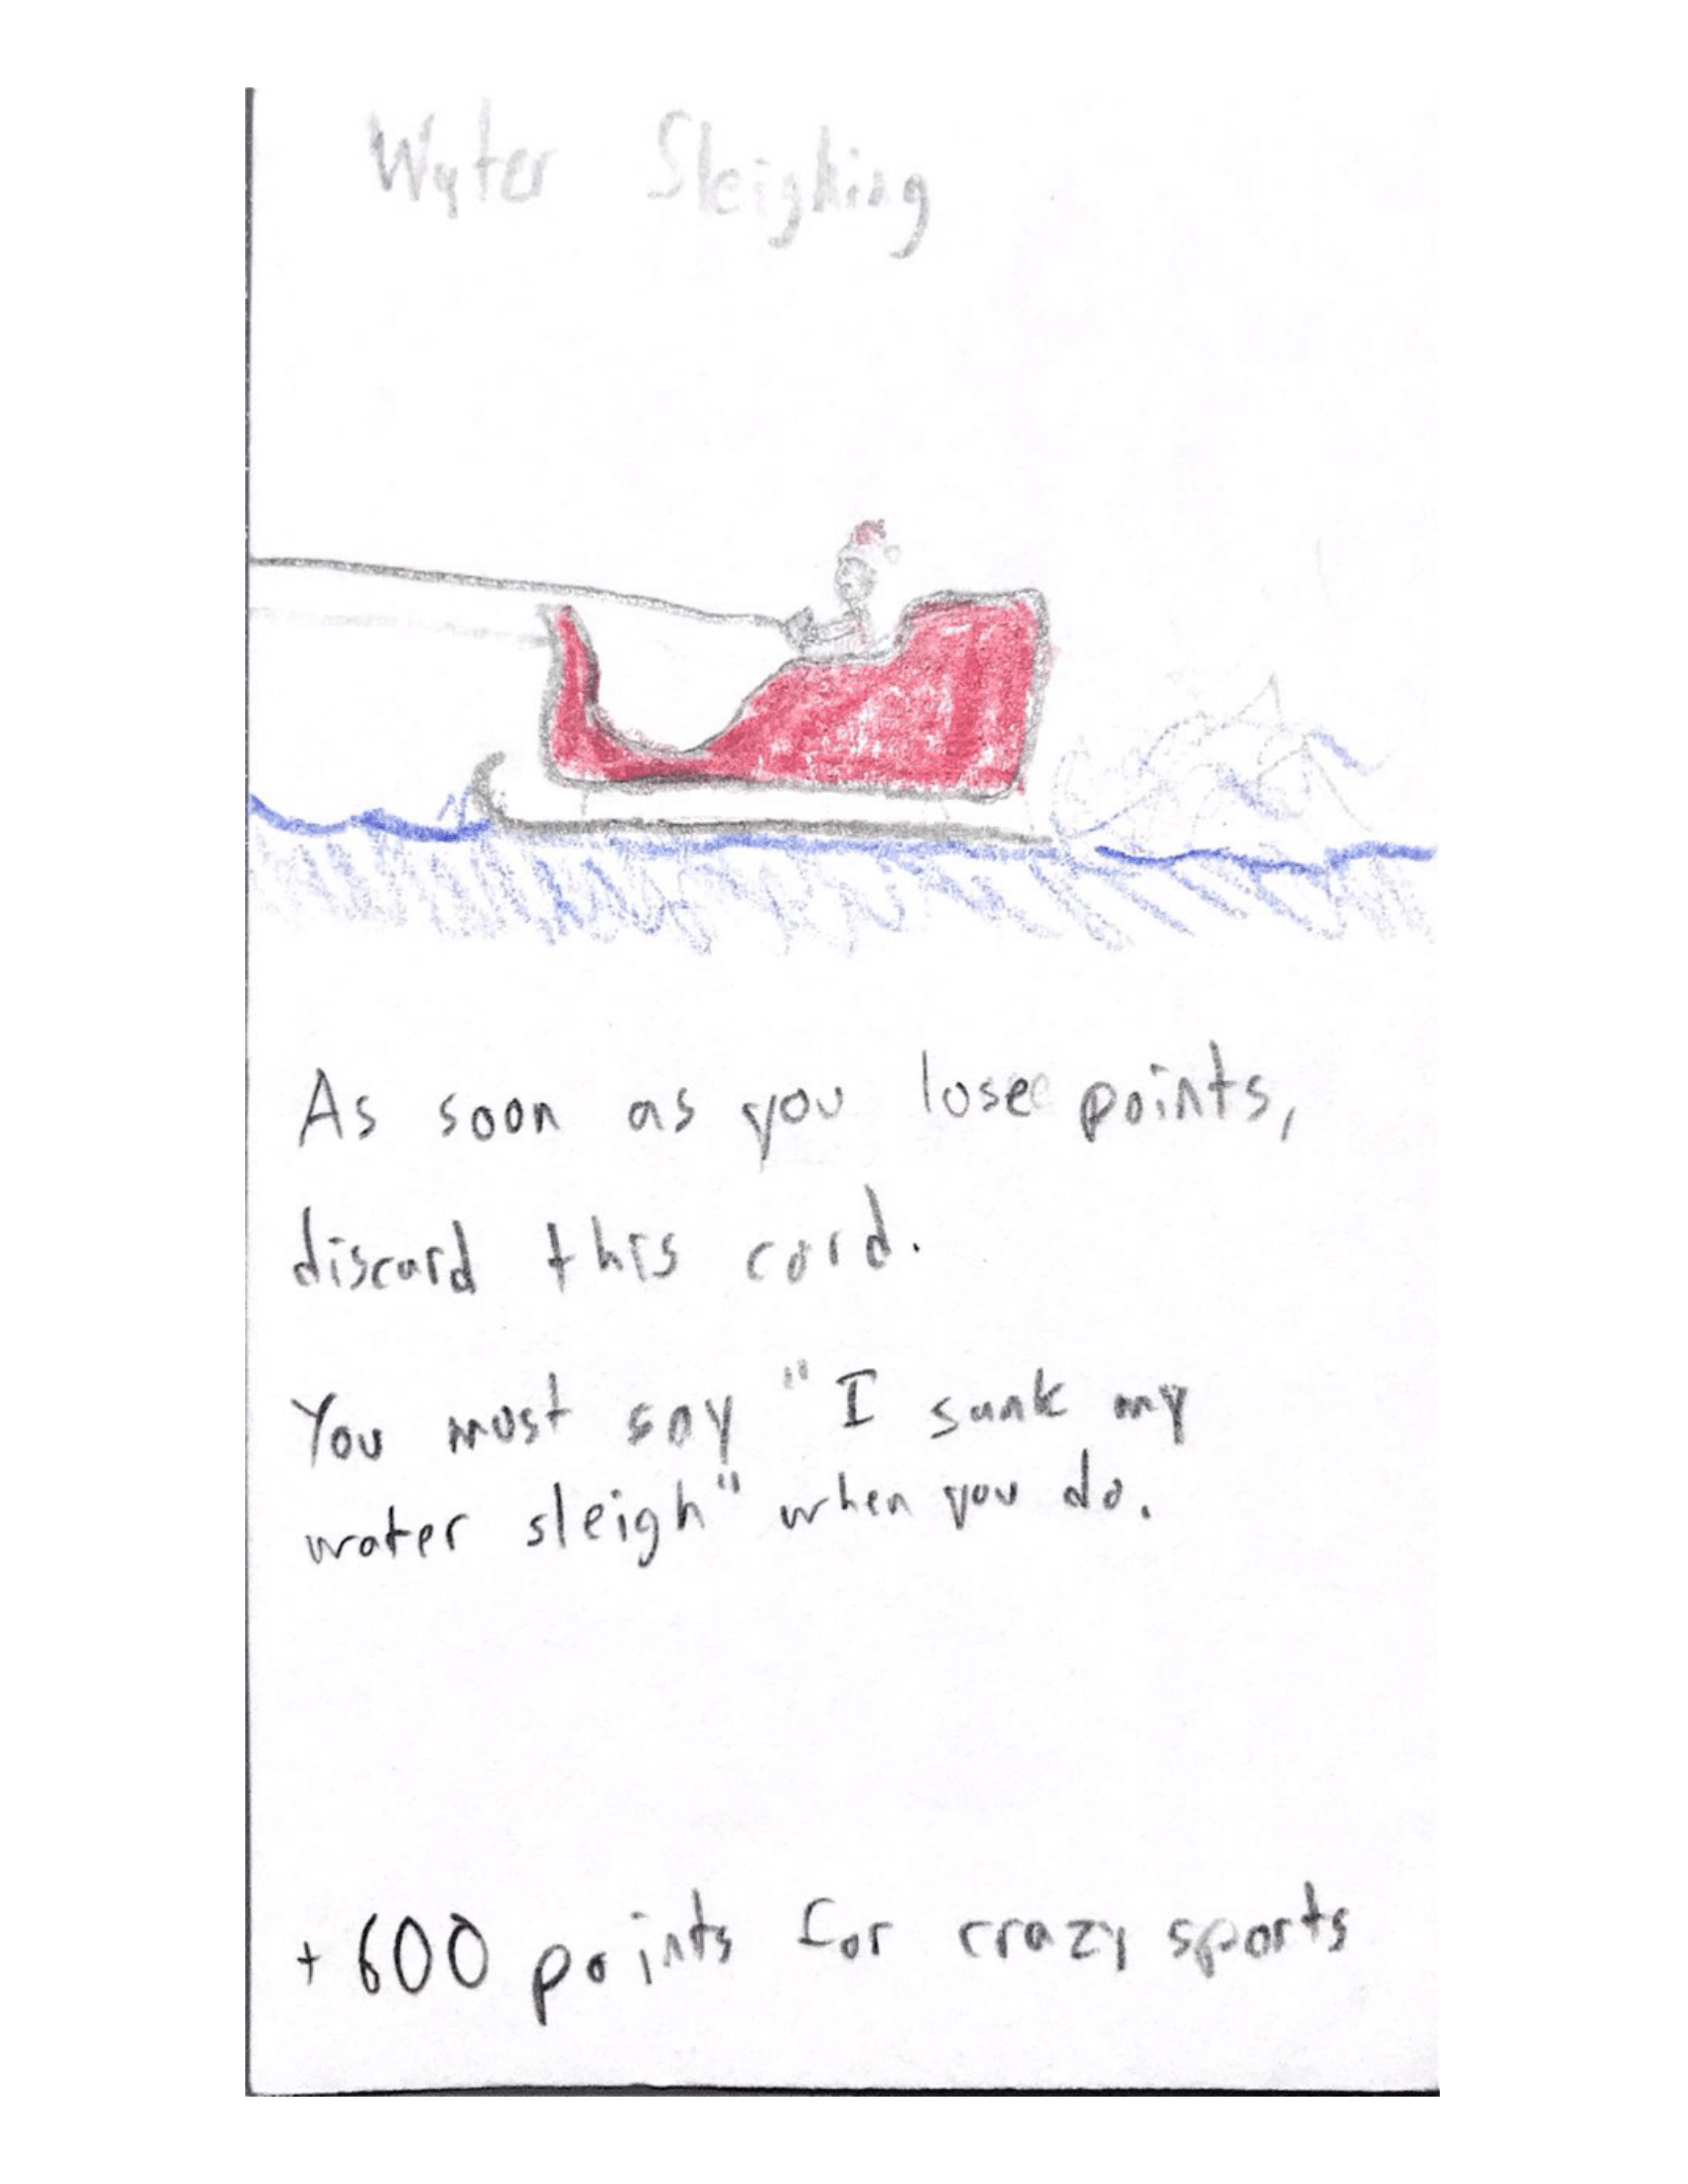 Water Sleighing
As soon as you lose points,
discard this card.
You must say "I sunk my
water sleigh" when you do.
+600 points for crazy sports